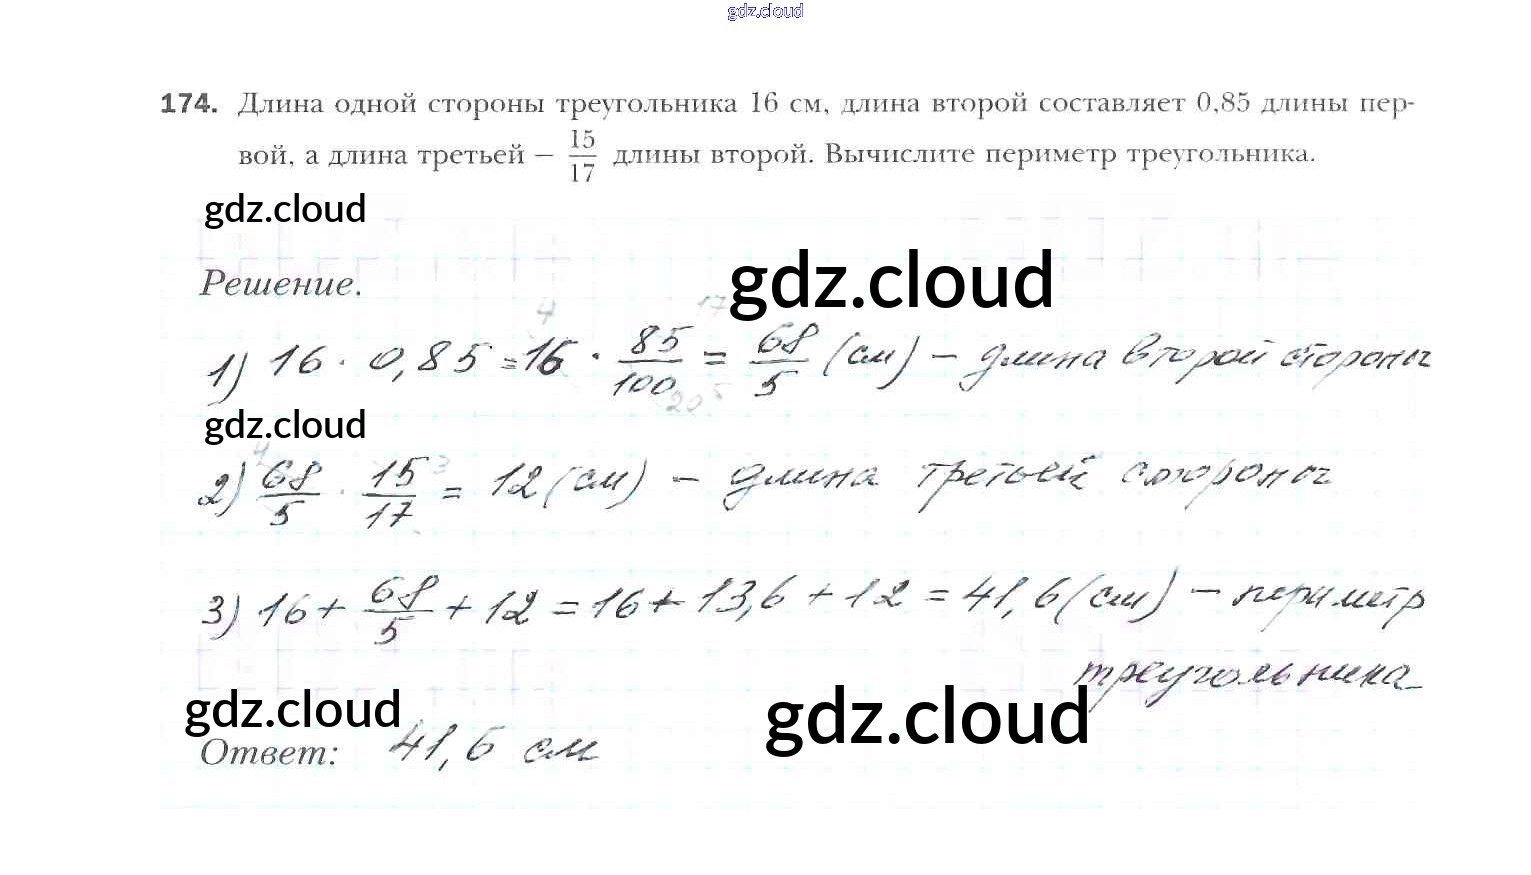 gdz.cloud
174. Длина одной стороны треугольника 16 см, длина второй составляет 0,85 длины пер-
вой, а длина третьей – 15/17 длины второй. Вычислите периметр треугольника.
gdz.cloud
gdz.cloud
Решение.
4 17
1) 16 · 0,85 = 16 · 85/100 = 68/5 (см) – длина второй стороны
20 5
gdz.cloud
4 3
2) 68/5 · 15/17 = 12 (см) – длина третьей стороны
3) 16 + 68/5 + 12 = 16 + 13,6 + 12 = 41,6 (см) – периметр
треугольника
gdz.cloud
gdz.cloud
Ответ: 41,6 см